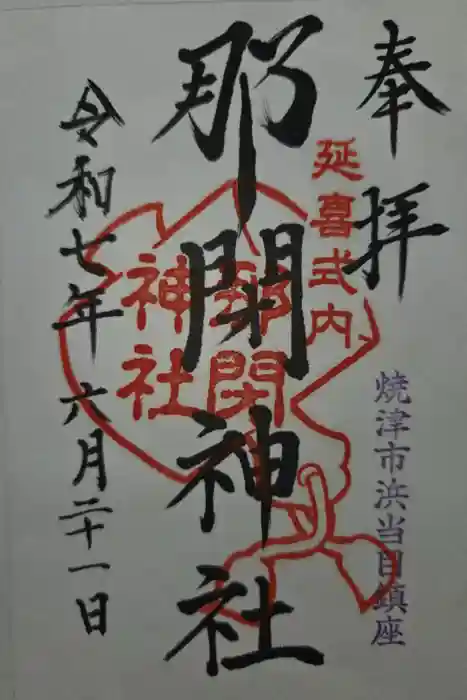 奉拝
延喜式内
焼津市浜当目鎮座
那閇神社
那閇神社
令和七年六月二十一日